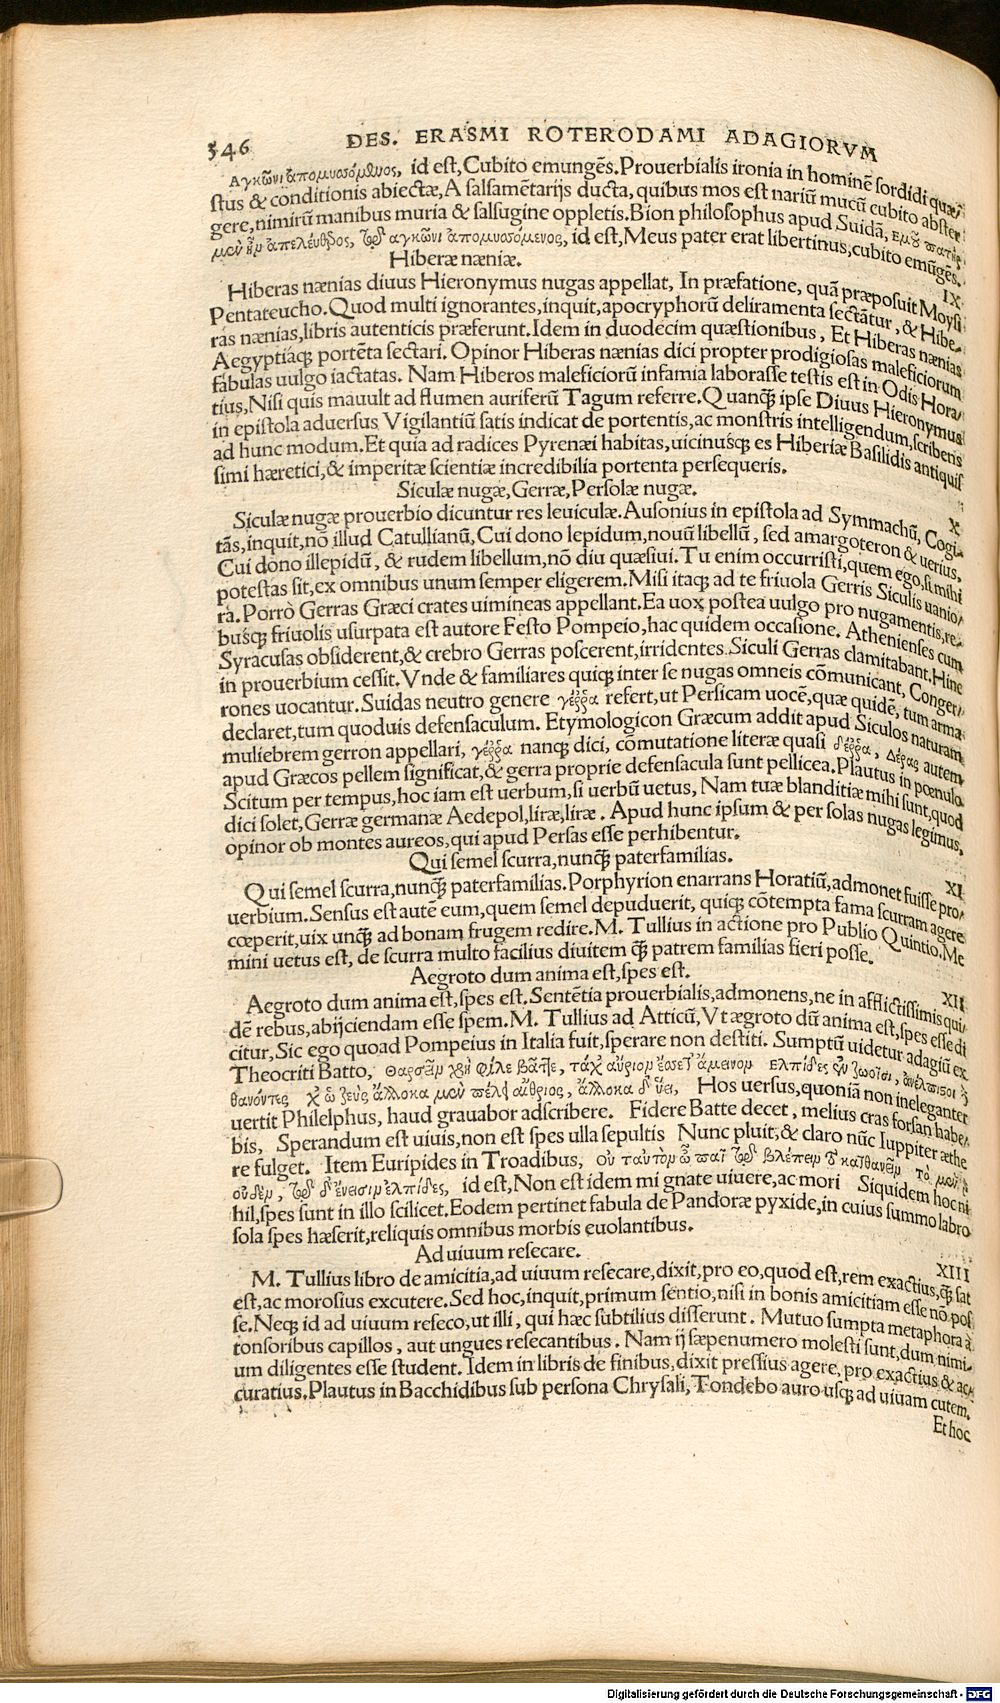 546 DES. ERASMI ROTERODAMI ADAGIORVM
Αγκῶνι ἀπομυσόμενος, id est, Cubito emungēs. Prouerbialis ironia in hominē sordidi quæ/
stus & conditionis abiectæ, A salsamētarijs ducta, quibus mos est nariū mucū cubito abster
gere, nimirū manibus muria & salsugine oppletis. Bion philosophus apud Suidā, εμοῦ ὁ πατὴρ
μὲν ἦν ἀπελεύθερος, τῷ αγκῶνι ἀπομυσόμενος, id est, Meus pater erat libertinus, cubito emūgēs.
Hiberæ næniæ. IX
Hiberas nænias diuus Hieronymus nugas appellat, In præfatione, quā præposuit Moysi
Pentateucho. Quod multi ignorantes, inquit, apocryphorū deliramenta sectātur, & Hibe-
ras nænias, libris autenticis præferunt. Idem in duodecim quæstionibus, Et Hiberas nænias
Aegyptiaq́; portēta sectari. Opinor Hiberas nænias dici propter prodigiosas maleficiorum
fabulas uulgo iactatas. Nam Hiberos maleficiorū infamia laborasse testis est in Odis Hora/
tius, Nisi quis mauult ad flumen auriferū Tagum referre. Quanq̄ ipse Diuus Hieronymus
in epistola aduersus Vigilantiū satis indicat de portentis, ac monstris intelligendum, scribens
ad hunc modum. Et quia ad radices Pyrenæi habitas, uicinusq́; es Hiberiæ Basilidis antiquis
simi hæretici, & imperitæ scientiæ incredibilia portenta persequeris.
Siculæ nugæ, Gerræ, Persolæ nugæ. X
Siculæ nugæ prouerbio dicuntur res leuiculæ. Ausonius in epistola ad Symmachū, Cogi-
tās, inquit, nō illud Catullianū, Cui dono lepidum, nouū libellū, sed amargoteron & uerius,
Cui dono illepidū, & rudem libellum, nō diu quæsiui. Tu enim occurristi, quem ego, si mihi
potestas sit, ex omnibus unum semper eligerem. Misi itaq; ad te friuola Gerris Siculis uanio/
ra. Porrò Gerras Græci crates uimineas appellant. Ea uox postea uulgo pro nugamentis, re-
busq́; friuolis usurpata est autore Festo Pompeio, hac quidem occasione. Athenienses cum
Syracusas obsiderent, & crebro Gerras poscerent, irridentes Siculi Gerras clamitabant. Hinc
in prouerbium cessit. Vnde & familiares quiq; inter se nugas omneis cōmunicant, Conger/
rones uocantur. Suidas neutro genere γέῤῥα refert, ut Persicam uocē, quæ quidē, tum arma
declaret, tum quoduis defensaculum. Etymologicon Græcum addit apud Siculos naturam
muliebrem gerron appellari, γέῤῥα nanq; dici, cōmutatione literæ quasi δέῤῥα, Δέρας autem
apud Græcos pellem significat, & gerra proprie defensacula sunt pellicea. Plautus in pœnulo
Scitum per tempus, hoc iam est uerbum, si uerbū uetus, Nam tuæ blanditiæ mihi sunt, quod
dici solet, Gerræ germanæ Aedepol, liræ, liræ. Apud hunc ipsum & per solas nugas legimus,
opinor ob montes aureos, qui apud Persas esse perhibentur.
Qui semel scurra, nunq̄ paterfamilias. XI
Qui semel scurra, nunq̄ paterfamilias. Porphyrion enarrans Horatiū, admonet fuisse pro/
uerbium. Sensus est autē eum, quem semel depuduerit, quiq; cōtempta fama scurram agere
cœperit, uix unq̄ ad bonam frugem redire. M. Tullius in actione pro Publio Quintio. Me
mini uetus est, de scurra multo facilius diuitem q̄ patrem familias fieri posse.
Aegroto dum anima est, spes est. XII
Aegroto dum anima est, spes est. Sentētia prouerbialis, admonens, ne in afflictissimis qui/
dē rebus, abijciendam esse spem. M. Tullius ad Atticū, Vt ægroto dū anima est, spes esse di
citur, Sic ego quoad Pompeius in Italia fuit, sperare non destiti. Sumptū uidetur adagiū ex
Theocriti Batto, Θαρσεῖν χρὴ φίλε βάττε, τάχ᾽ αὔριον ἔσετ᾽ ἄμεινον Ελπίδες ἐν ζωοῖσι, ἀνέλπιστοι δὲ
θανόντες χ᾽ ὡ ζεὺς ἄλλοκα μὲν πέλει αἴθριος, ἄλλοκα δ᾽ ὕει, Hos uersus, quoniā non ineleganter
uertit Philelphus, haud grauabor adscribere. Fidere Batte decet, melius cras forsan habe/
bis, Sperandum est uiuis, non est spes ulla sepultis Nunc pluit, & claro nūc Iuppiter æthe
re fulget. Item Euripides in Troadibus, οὐ ταυτὸν ὦ παῖ τῷ βλέπειν τὸ κατθανεῖν τὸ μὲν γὰρ
οὐδὲν, τῷ δ᾽ ἔνεισιν ἐλπίδες, id est, Non est idem mi gnate uiuere, ac mori Siquidem hoc ni
hil, spes sunt in illo scilicet. Eodem pertinet fabula de Pandoræ pyxide, in cuius summo labro
sola spes hæserit, reliquis omnibus morbis euolantibus.
Ad uiuum resecare. XIII
M. Tullius libro de amicitia, ad uiuum resecare, dixit, pro eo, quod est, rem exactius, q̄ sat
est, ac morosius excutere. Sed hoc, inquit, primum sentio, nisi in bonis amicitiam esse nō pos
se. Neq; id ad uiuum reseco, ut illi, qui hæc subtilius disserunt. Mutuo sumpta metaphora à
tonsoribus capillos, aut ungues resecantibus. Nam ij sæpenumero molesti sunt, dum nimi-
um diligentes esse student. Idem in libris de finibus, dixit pressius agere, pro exactius & ac/
curatius. Plautus in Bacchidibus sub persona Chrysali, Tondebo auro usq; ad uiuam cutem.
Et hoc
Digitalisierung gefördert durch die Deutsche Forschungsgemeinschaft - DFG